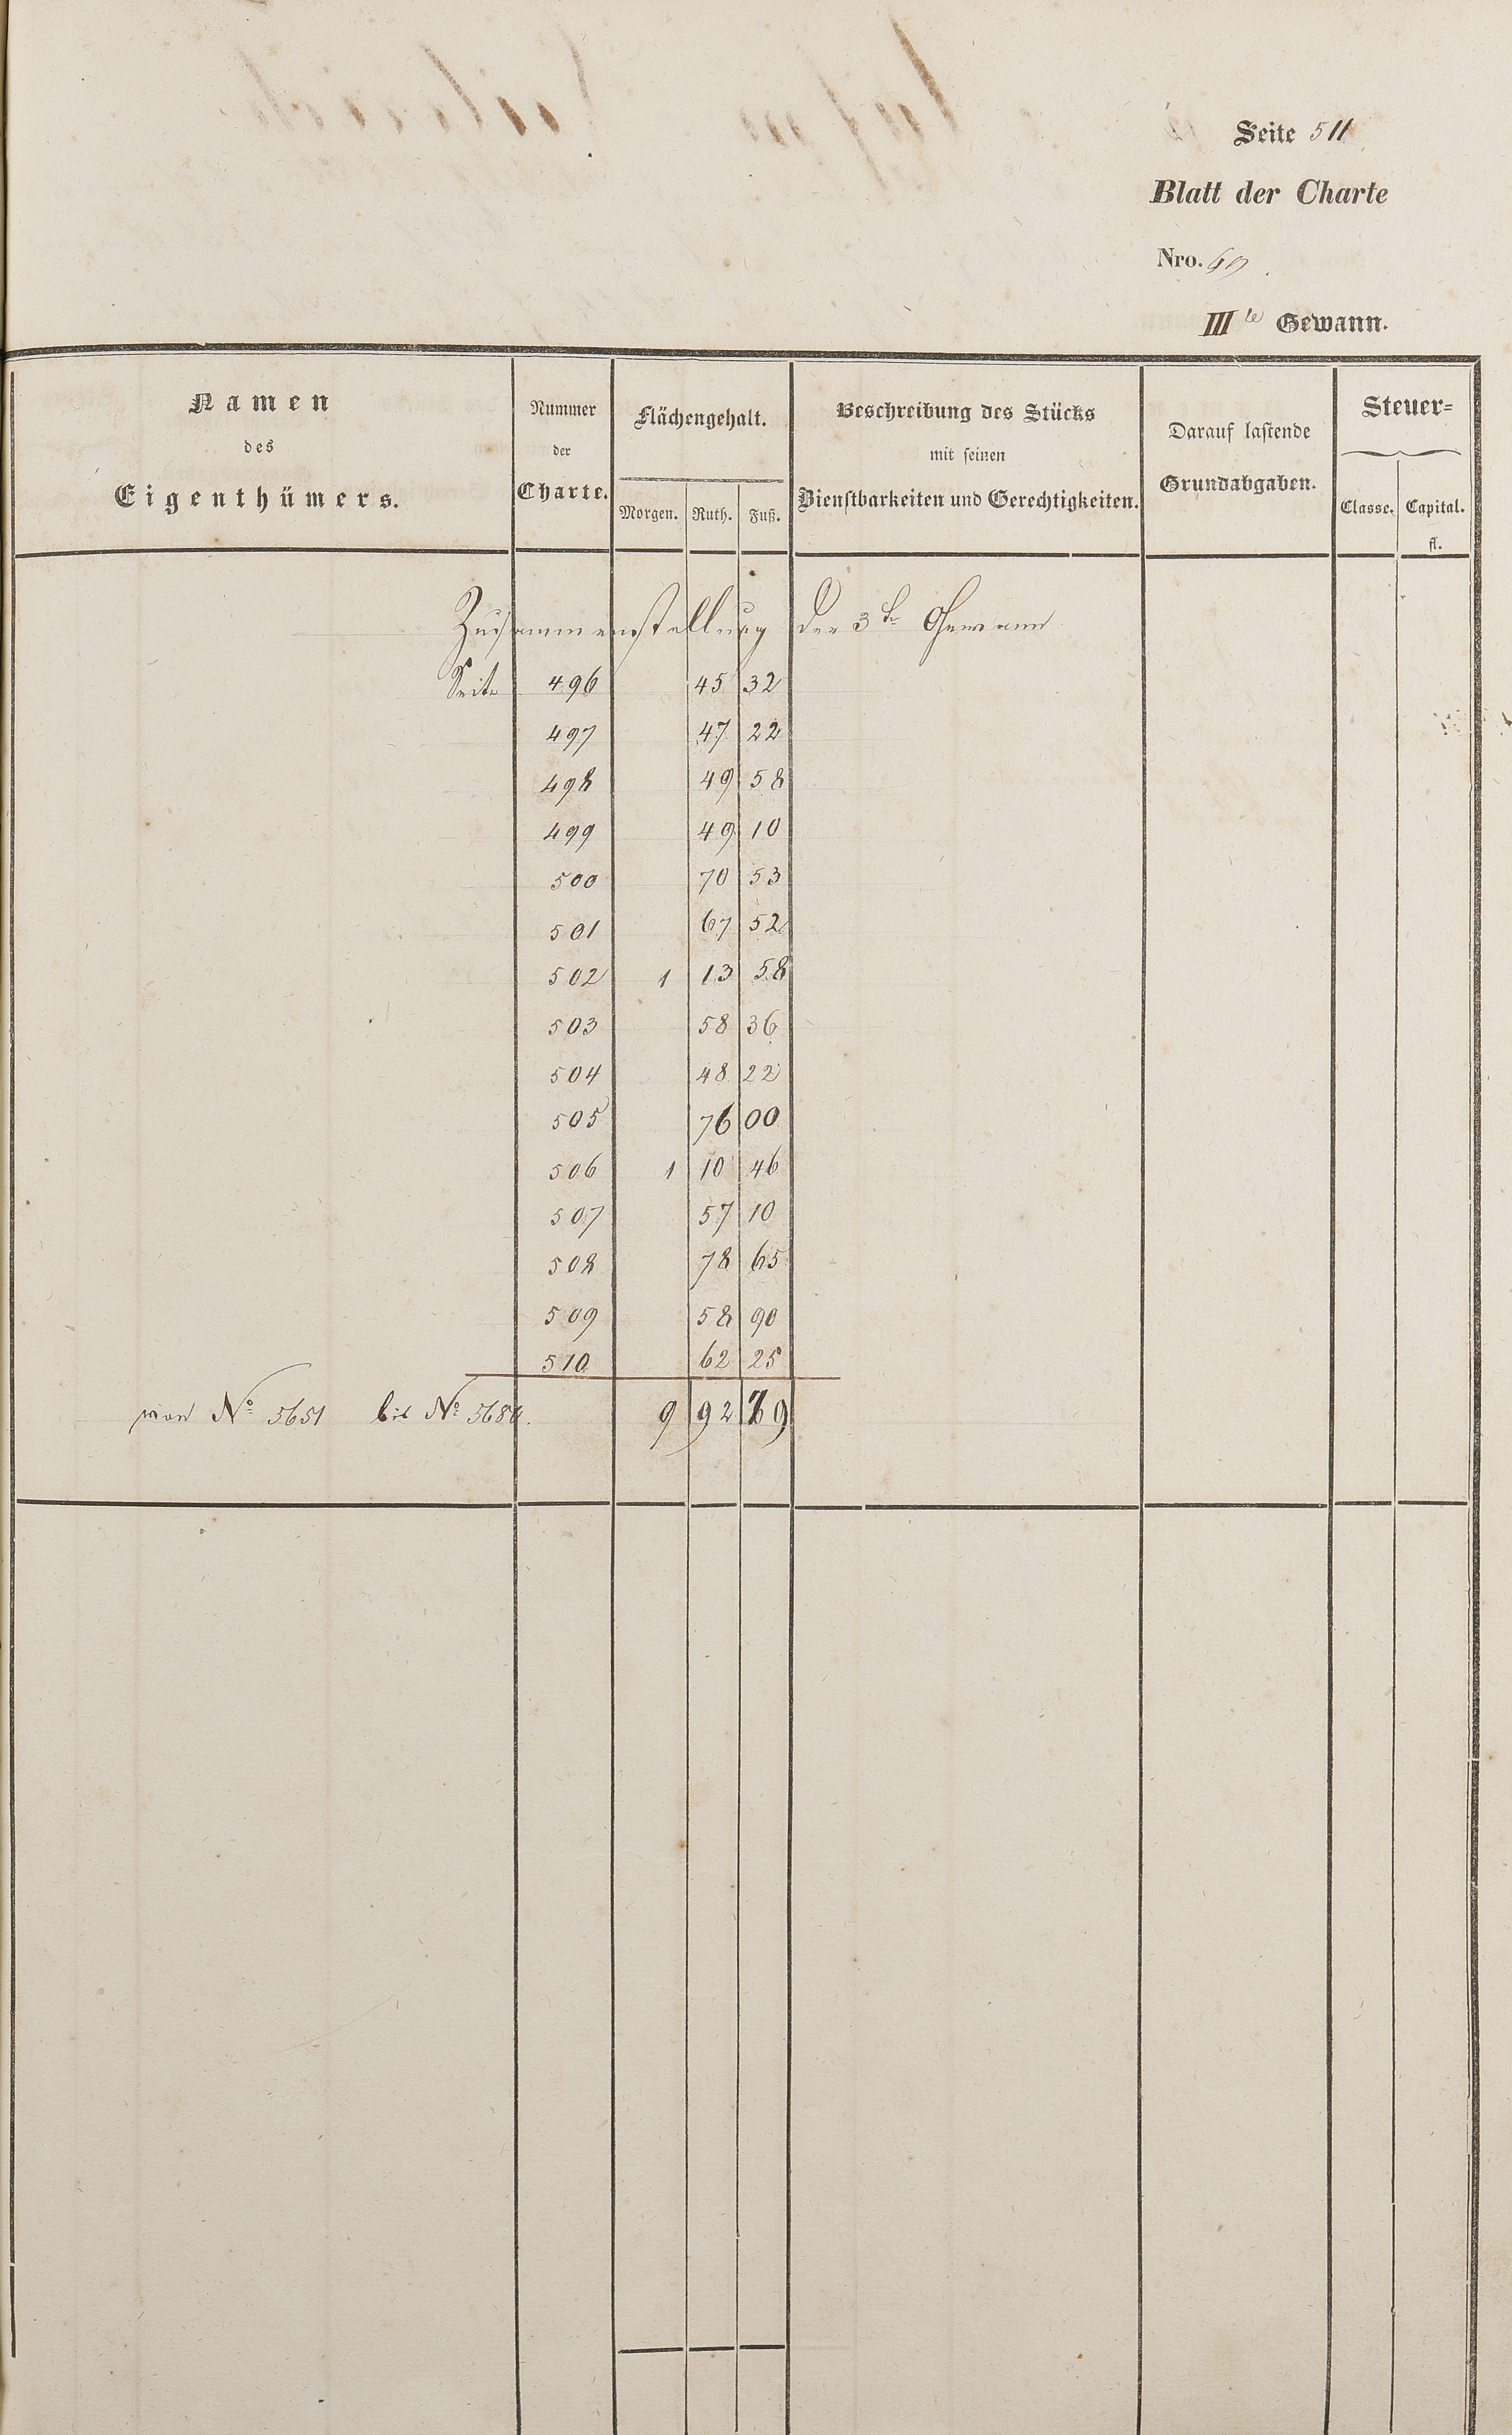 Seite 511
Blatt der Charte
Nro.
III te Gewann.
Namen
des
Eigenthümers.
Nummer
der
Charte.
Flächengehalt.
Morgen. Ruth. Fuß.
Beschreibung des Stücks
mit seinen
Dienstbarkeiten und Gerechtigkeiten.
Darauf lastende
Grundabgaben.
Steuer=
Classe. Capital.
fl.
Zusammenstellung der 3te Gewann
Seite 496 45 32
497 47 22
498 49 58
499 49 10
500 70 53
501 67 52
502 1 13 58
503 58 36
504 48 22
505 76 00
506 1 10 46
507 57 10
508 78 65
509 58 90
510 62 25
von No 5651 bis No 9 92 79